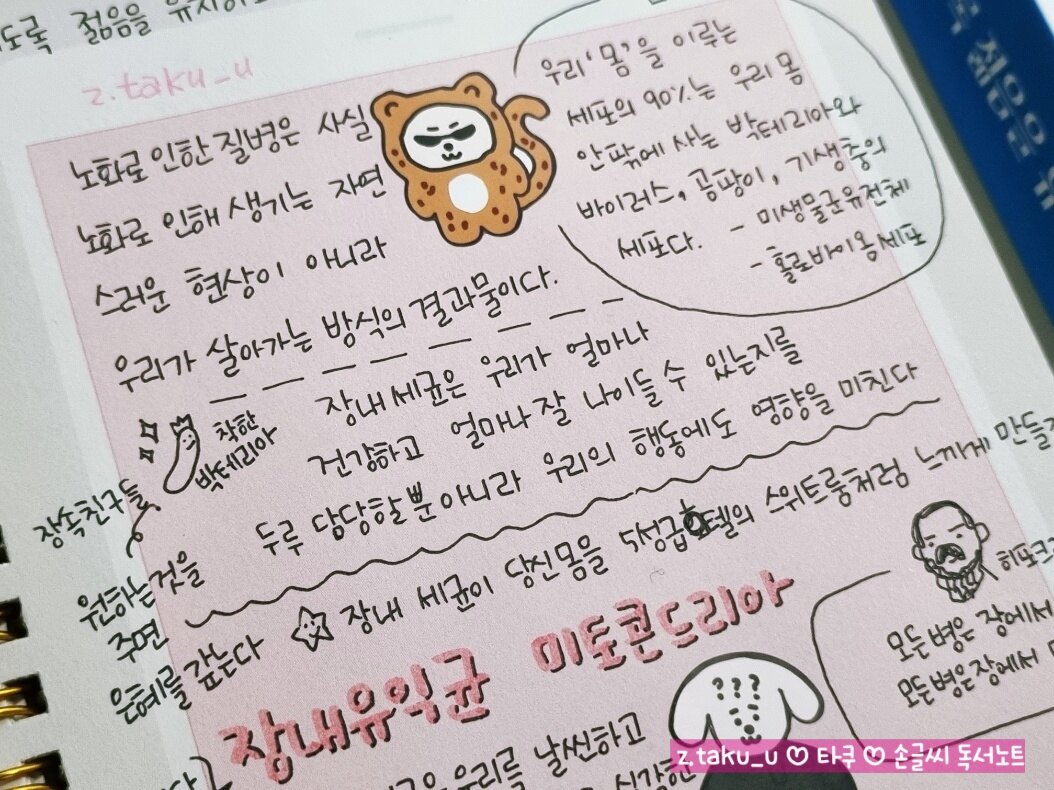 젊음을
z.taku_u
노화로 인한 질병은 사실
노화로 인해 생기는 자연
스러운 현상이 아니라
우리가 살아가는 방식의 결과물이다.
우리 '몸'을 이루는
세포의 90%는 우리 몸
안팎에 사는 박테리아와
바이러스, 곰팡이, 기생충의
세포다. - 미생물군유전체
- 홀로바이옴 세포
착한
박테리아
장내 세균은 우리가 얼마나
건강하고 얼마나 잘 나이들 수 있는지를
두루 담당할 뿐 아니라 우리의 행동에도 영향을 미친다
장속친구들
원하는것을
주면
은혜를 갚는다
장내 세균이 당신 몸을 5성급호텔의 스위트룸처럼 느끼게
장내유익균 미토콘드리아
모든 병은 장에서
모든 병은 장에서
???
우리를 날씬하고
z.taku_u ♡ 타쿠 ♡ 손글씨 독서노트